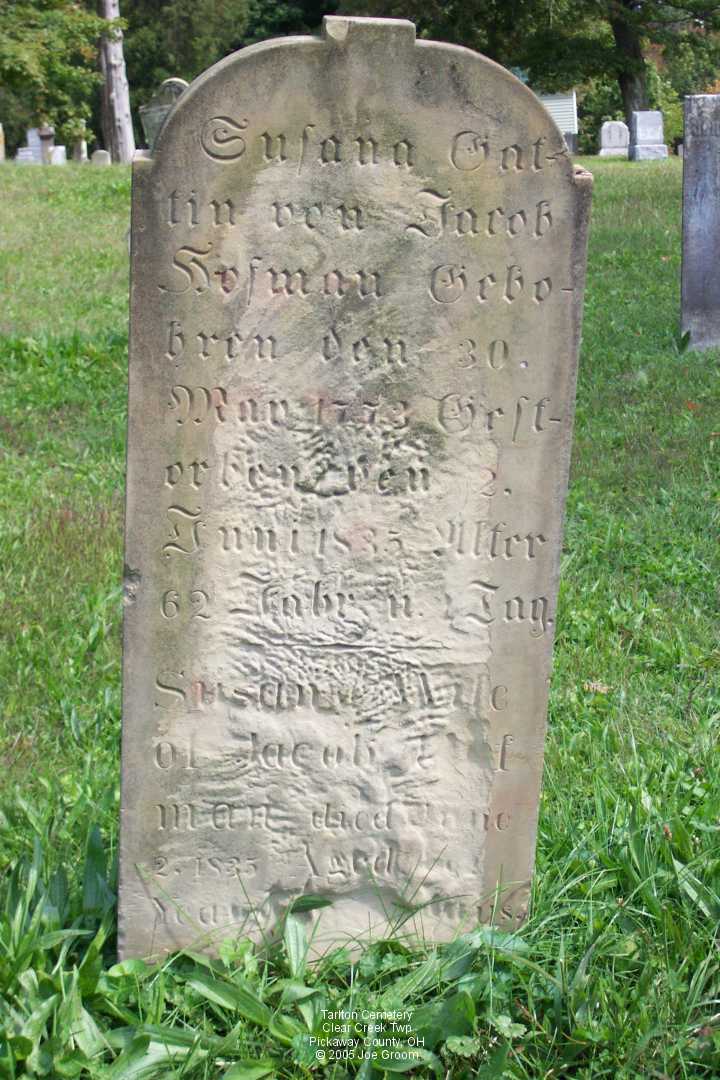 Susana Gat-
tin von Jacob
Hofman Gebo-
bren den 30.
May 1773 Gest-
orben den 2.
Juni 1835 Alter
62 Jahr u. Tag.
Susana Wife
of Jacob
man died June
2. 1835 Aged
Years
Tarlton Cemetery
Clear Creek Twp
Pickaway County, OH
© 2005 Joe Groom